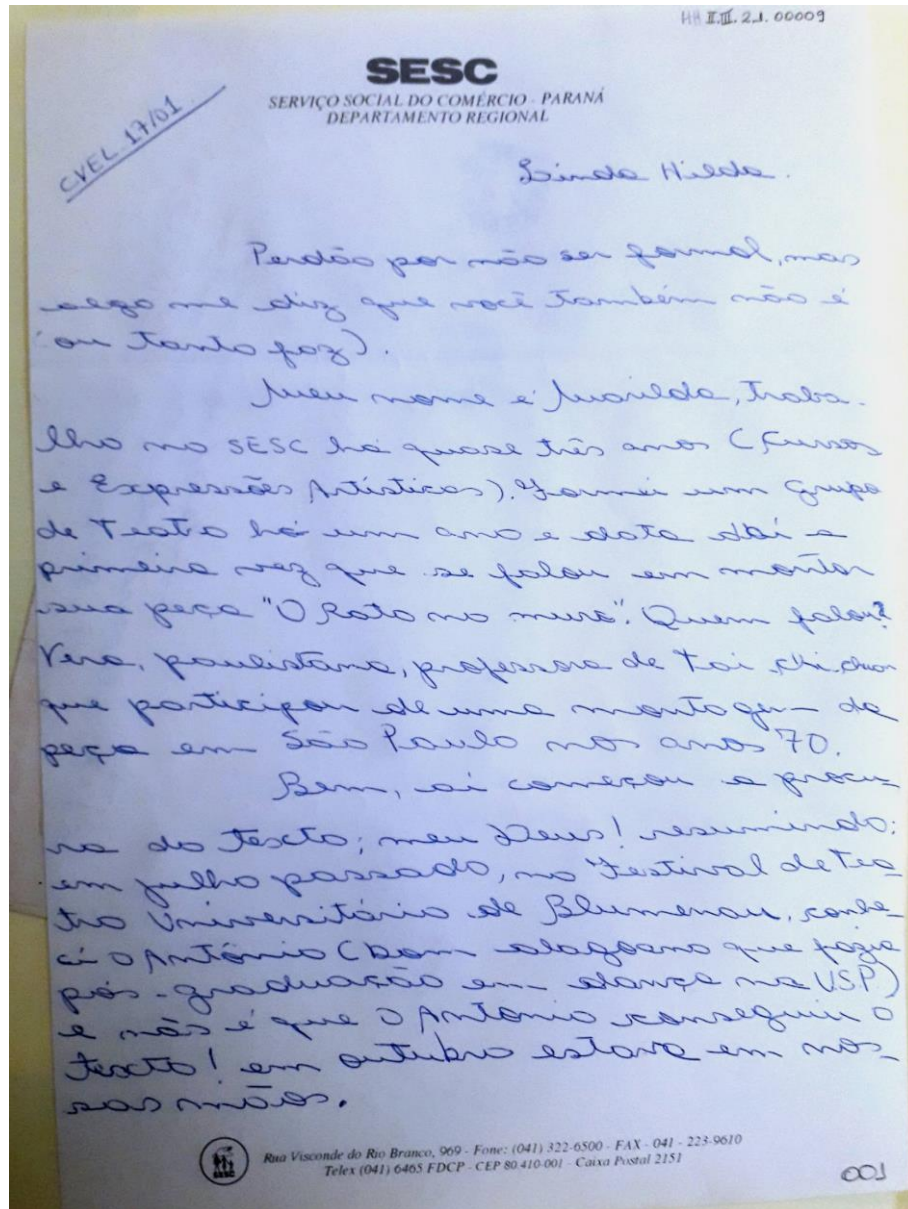 HB II.III.2.1.00009
SESC
SERVIÇO SOCIAL DO COMÉRCIO - PARANÁ
DEPARTAMENTO REGIONAL
CVEL 17/01
Linda Hilda.
Perdão por não ser formal, mas
algo me diz que você também não é
(ou tanto faz).
Meu nome é Marilda, traba-
lho no SESC há quase três anos (Cursos
e Expressões Artísticas). Formei um Grupo
de Teatro há um ano e data daí a
primeira vez que se falou em montar
sua peça "O Rato no muro". Quem falou?
Vera, paulistana, professora de Tai chi chuan
que participou de uma montagem da
peça em São Paulo nos anos 70.
Bem, aí começou a procu-
ra do texto; meu Deus! resumindo:
em julho passado, no Festival de Tea-
tro Universitário de Blumenau, conhe-
ci o Antônio (bom alagoano que fazia
pós-graduação em dança na USP)
e não é que o Antônio conseguiu o
texto! em outubro estava em nos-
sas mãos.
SESC
Rua Visconde do Rio Branco, 969 - Fone: (041) 322-6500 - FAX - 041 - 223-9610
Telex (041) 6465 FDCP - CEP 80.410-001 - Caixa Postal 2151
001